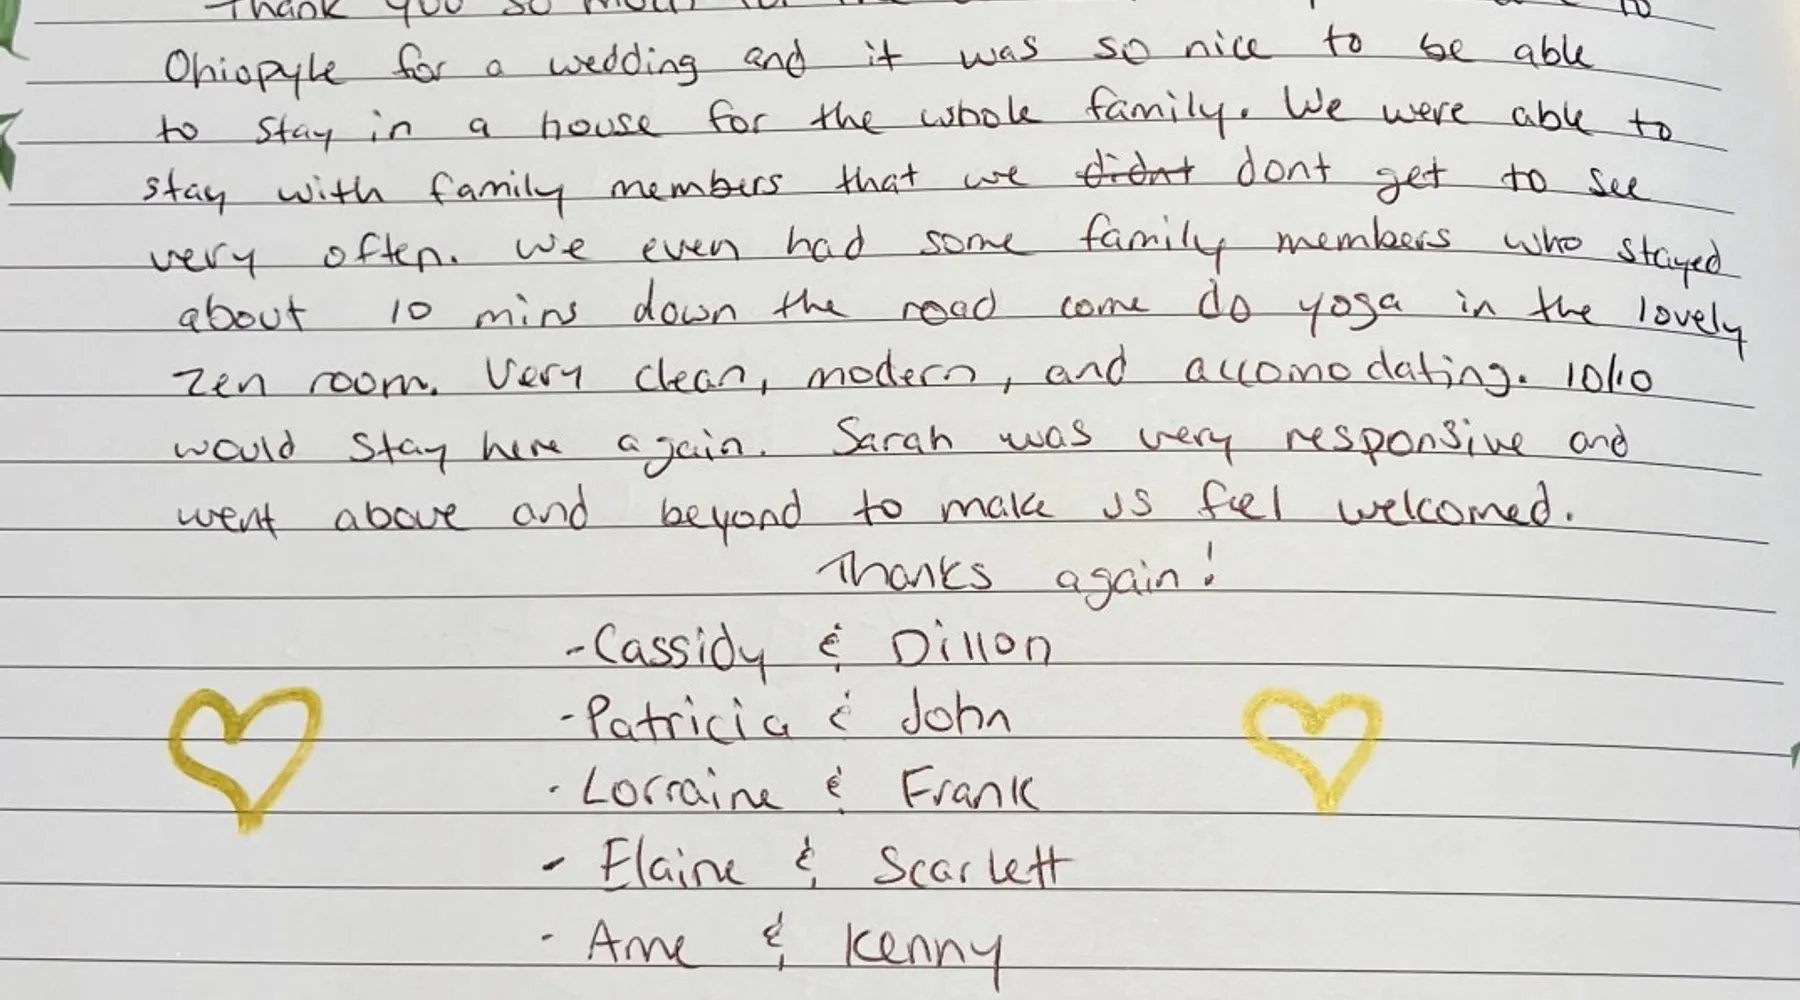 Thank you so much for the
to
Ohiopyle for a wedding and it was so nice to be able
to stay in a house for the whole family. We were able to
stay with family members that we didnt dont get to see
very often. We even had some family members who stayed
about 10 mins down the road come do yoga in the lovely
zen room. Very clean, modern, and accomodating. 10/10
would stay here again. Sarah was very responsive and
went above and beyond to make us feel welcomed.
Thanks again!
-Cassidy & Dillon
-Patricia & John
- Lorraine & Frank
- Elaine & Scarlett
- Anne & Kenny